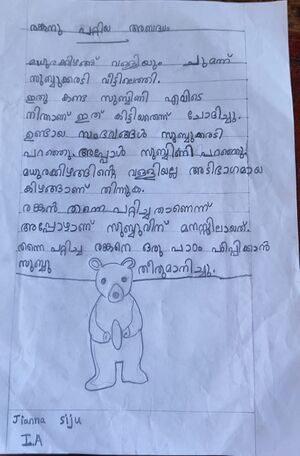 രങ്കനു പറ്റിയ അബദ്ധം
മധുരക്കിഴങ്ങ് വള്ളിയും ചുമന്ന്
സുബ്ബുക്കരടി വീട്ടിലെത്തി.
ഇതു കണ്ട സുബ്ബിണി എവിടെ
നിന്നാണ് ഇത് കിട്ടിയതെന്ന് ചോദിച്ചു.
ഉണ്ടായ സംഭവങ്ങൾ സുബ്ബുക്കരടി
പറഞ്ഞു. അപ്പോൾ സുബ്ബിണി പറഞ്ഞു.
മധുരക്കിഴങ്ങിന്റെ വള്ളിയല്ല അടിഭാഗമായ
കിഴങ്ങാണ് തിന്നുക.
രങ്കൻ തന്നെ പറ്റിച്ചതാണെന്ന്
അപ്പോഴാണ് സുബ്ബുവിന് മനസ്സിലായത്.
തന്നെ പറ്റിച്ച രങ്കനെ ഒരു പാഠം പഠിപ്പിക്കാൻ
സുബ്ബു തീരുമാനിച്ചു.
Jianna Siju
I.A